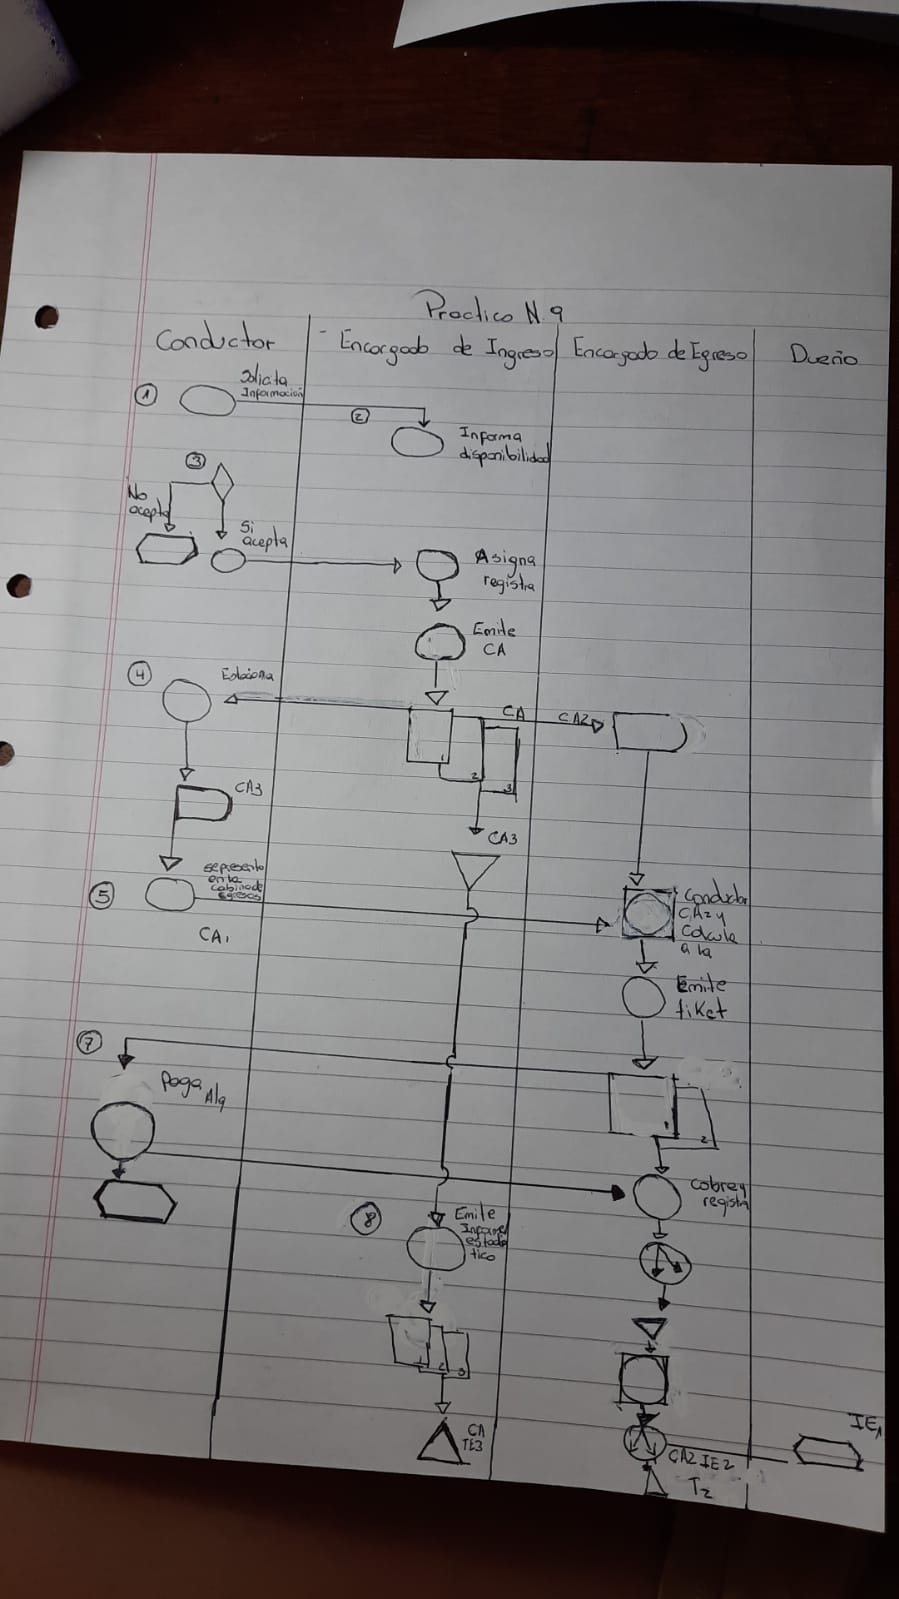 Practico N. 9
Conductor
Encargado de Ingreso
Encargado de Egreso
Dueño
1
Solicita
Información
2
Informa
disponibilidad
3
No
acepta
Si
acepta
Asigna
registra
Emite
CA
4
Estaciona
CA
CA2
1
2
3
CA3
CA3
5
se presenta
en la
cabina de
egresos
CA1
Conductor
CA2 y
calcula
a la
Emite
tiket
7
Paga Alq
1
2
Cobra y
registra
8
Emite
Informe
estadis
tico
1
2
3
CA
IE3
IE1
CA2 IE2
T2